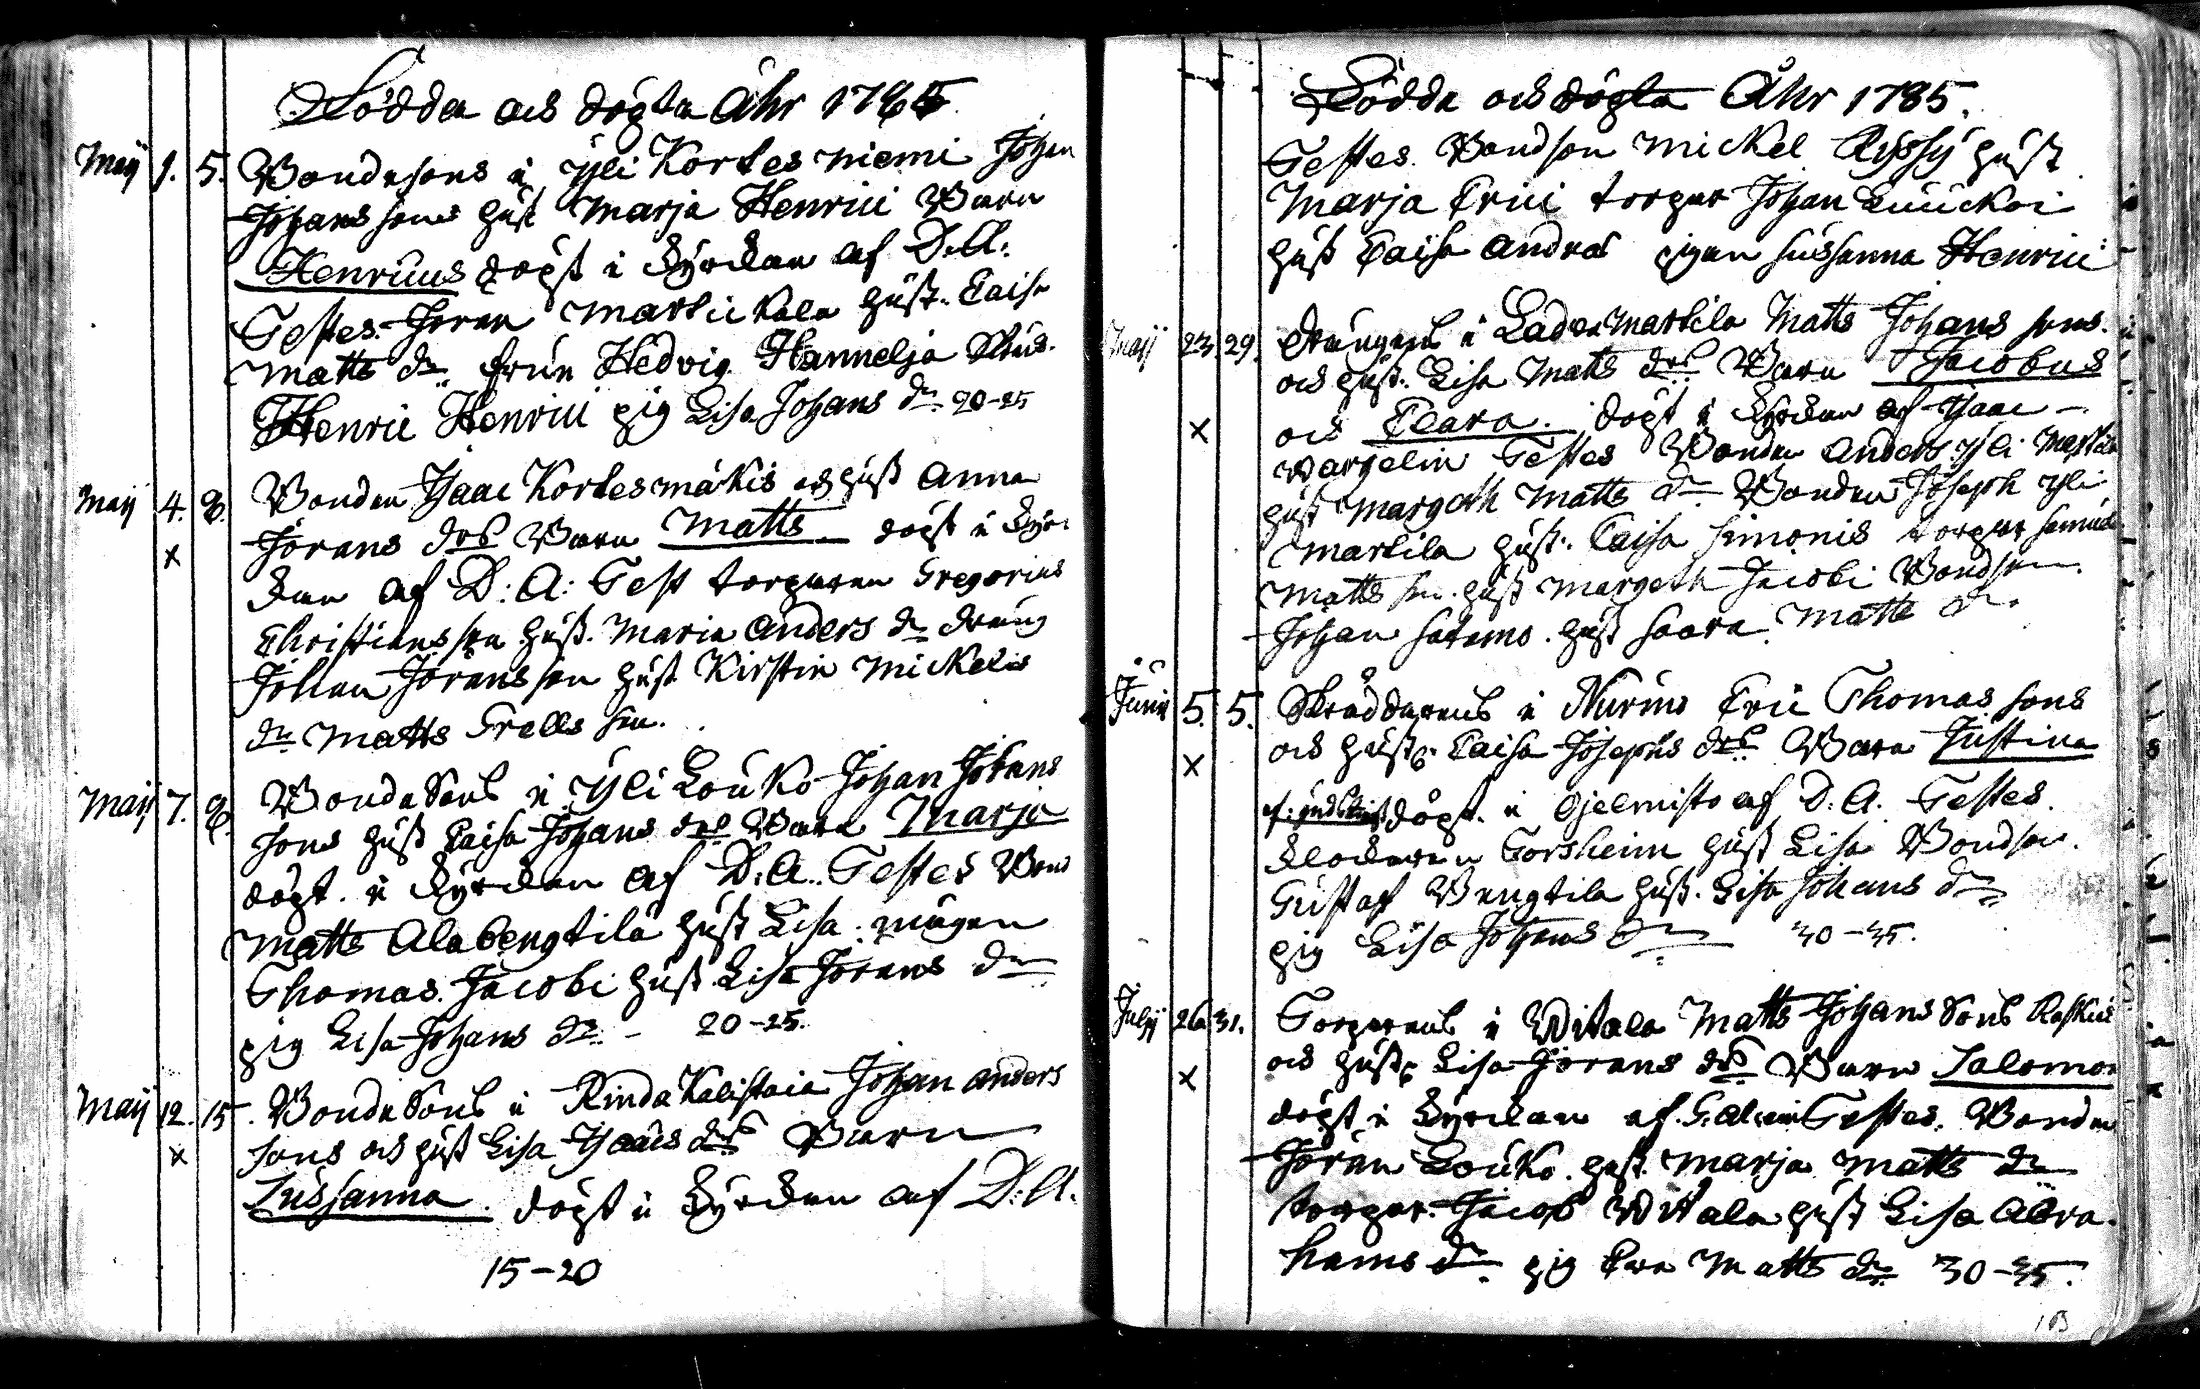 Födda och döpta Åhr 1785
Maij 1. 5. Bondesons i Yli Kortesniemi Johan
Johans sons hust Marja Henrici Barn
Henricus döpt i Kyrckan af D. A:
Testes. Jöran Marttickala hust. Caisa
Matts dr. frun Hedvig Hannelja
Henric Henrici pig Lisa Johans dr. 20-25
Maij 4. 8. Bonden Isaac Kortesmäkis och hust Anna
x Jörans drs Barn Matts döpt i Kyrc
kan af D: A: Test torparen Gregorius
Christiansson hust. Maria Anders dr dräng
Johan Jöransson hust Kirstin Mickels
dr Matts Grells son.
Maij 7. 8. Bonde Sons i Yli Louko Johan Johans
sons hust Caisa Johans drs Barn Marja
döpt. i Kyrckan af D. A. Testes Bond
Matts Alabengtila hust Lisa. mågen
Thomas Jacobi hust Lisa Jörans dr
pig Lisa Johans dr. - 20-25.
Maij 12. 15. Bonde Sons i Rinda Kalistaia Johan Anders
x sons och hust Lisa Isaacs drs Barn
Sussanna. döpt i Kyrckan af D: A.
15-20
Födda och döpta Åhr 1785.
Testes. Bondson Mickel Ryssy hust
Marja Erici torpar Johan Luuckoi
hust Caisa Andræ pigan Sussanna Henrici
Maij 23 29. Drängens i Ladva Marttila Matts Johans sons.
och hust. Lisa Matts drs Barn Jacobus
x och Clara. döpt i Kyrckan af Isaac
Wargelin Testes Bonden Anders Yli Marttila
hust Margeth Matts dr Bonden Joseph Yli
Marttila hust. Caisa Simonis torpar Samuel
Matts son. hust Margeth Jacobi Bondson
Johan Satamo. hust Saara Matts dr.
Junii 5. 5. Skräddarens i Nurmo Eric Thomas sons
x och hustr. Caisa Josephs drs Barn Justina
döpt. i Hjelmisto af D. A. Testes.
Klockaren Forsheim hust Lisa Bondson.
Gustaf Bengtila hust. Lisa Johans dr
pig Lisa Johans dr 30-35.
Julij 26 31. Torparens i Witala Matts Johans Sons
x och hustr Lisa Jörans drs Barn Salomon
döpt i Kyrckan af Testes. Bonden
Jöran Louko. hust. Marja Matts dr
torpar. Jacob Witala hust Lisa Abra
hams dr pig Eva Matts dr 30-35.